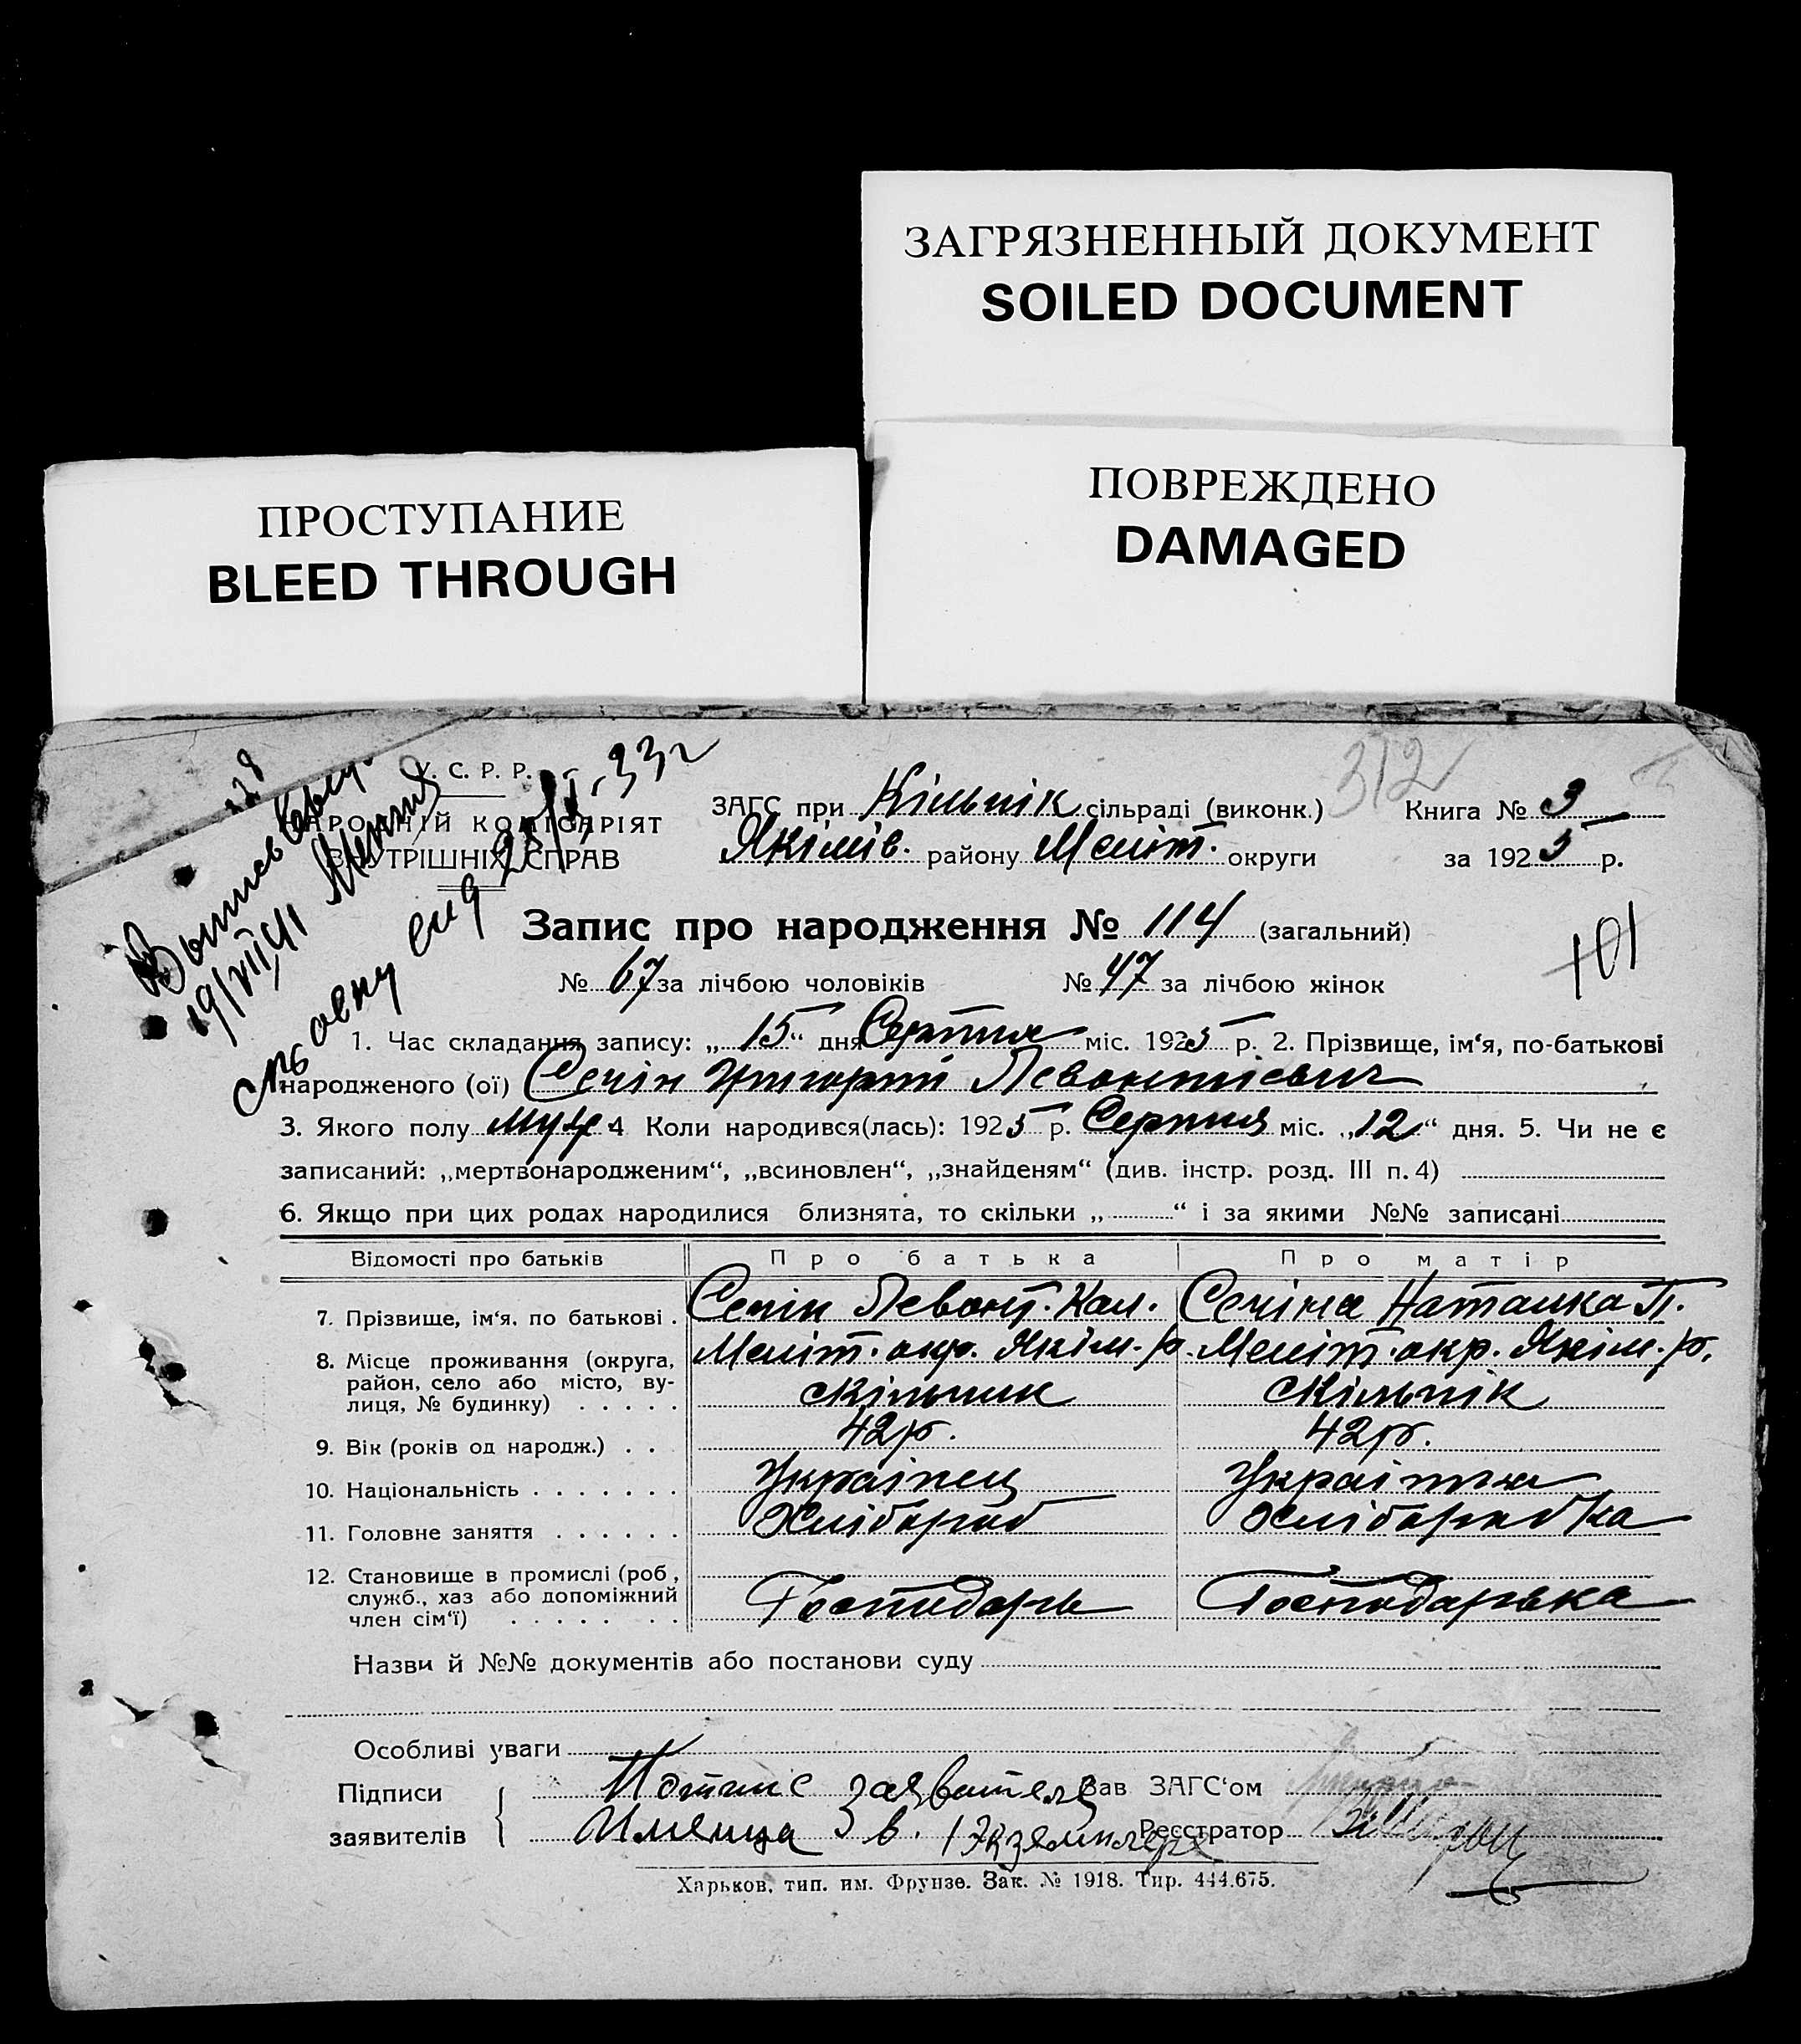 ЗАГРЯЗНЕННЫЙ ДОКУМЕНТ
SOILED DOCUMENT
ПРОСТУПАНИЕ
BLEED THROUGH
ПОВРЕЖДЕНО
DAMAGED
У. С. Р. Р.
НАРОДНІЙ КОМІСАРІЯТ
ВНУТРІШНІХ СПРАВ
33 г
19/VII 41
312
ЗАГС при Кільпік сільраді (виконк.) Книга № 3
Якімів. району Меліт. округи за 1925 р.
Запис про народження № 114 (загальний)
101
№ 67 за лічбою чоловіків № 47 за лічбою жінок
1. Час складання запису: „ 15 “ дня Серпня міс. 1925 р. 2. Прізвище, ім‘я, по-батькові
народженого (ої) Григорій Левонтієвич
3. Якого полу муж 4 Коли народився(лась): 1925 р. Серпня міс. „ 12 “ дня. 5. Чи не є
записаний: „мертвонародженим“, „всиновлен“, „знайденям“ (див. інстр. розд. III п. 4)
6. Якщо при цих родах народилися близнята, то скільки „ “ і за якими №№ записані
Відомості про батьків Про батька Про матір
7. Прізвище, ім‘я. по батькові . Левонт. Наталка П.
8. Місце проживання (округа, район, село або місто, вулиця, № будинку) Меліт. окр. Якім. р. Меліт. окр. Якім. р.
Кільпік
9. Вік (років од народж.) . . 42 р. 42 р.
10. Національність . . . . . . . Українец Українка
11. Головне заняття . . . . . . Хлібороб Хліборобка
12. Становище в промислі (роб, служб., хаз або допоміжний член сім‘ї) Господарь Господарька
Назви й №№ документів або постанови суду
Особливі уваги
Підписи заявителів Зав ЗАГС‘ом
Реєстратор
Харьков, тип. им. Фрунзе. Зак. № 1918. Тир. 444.675.